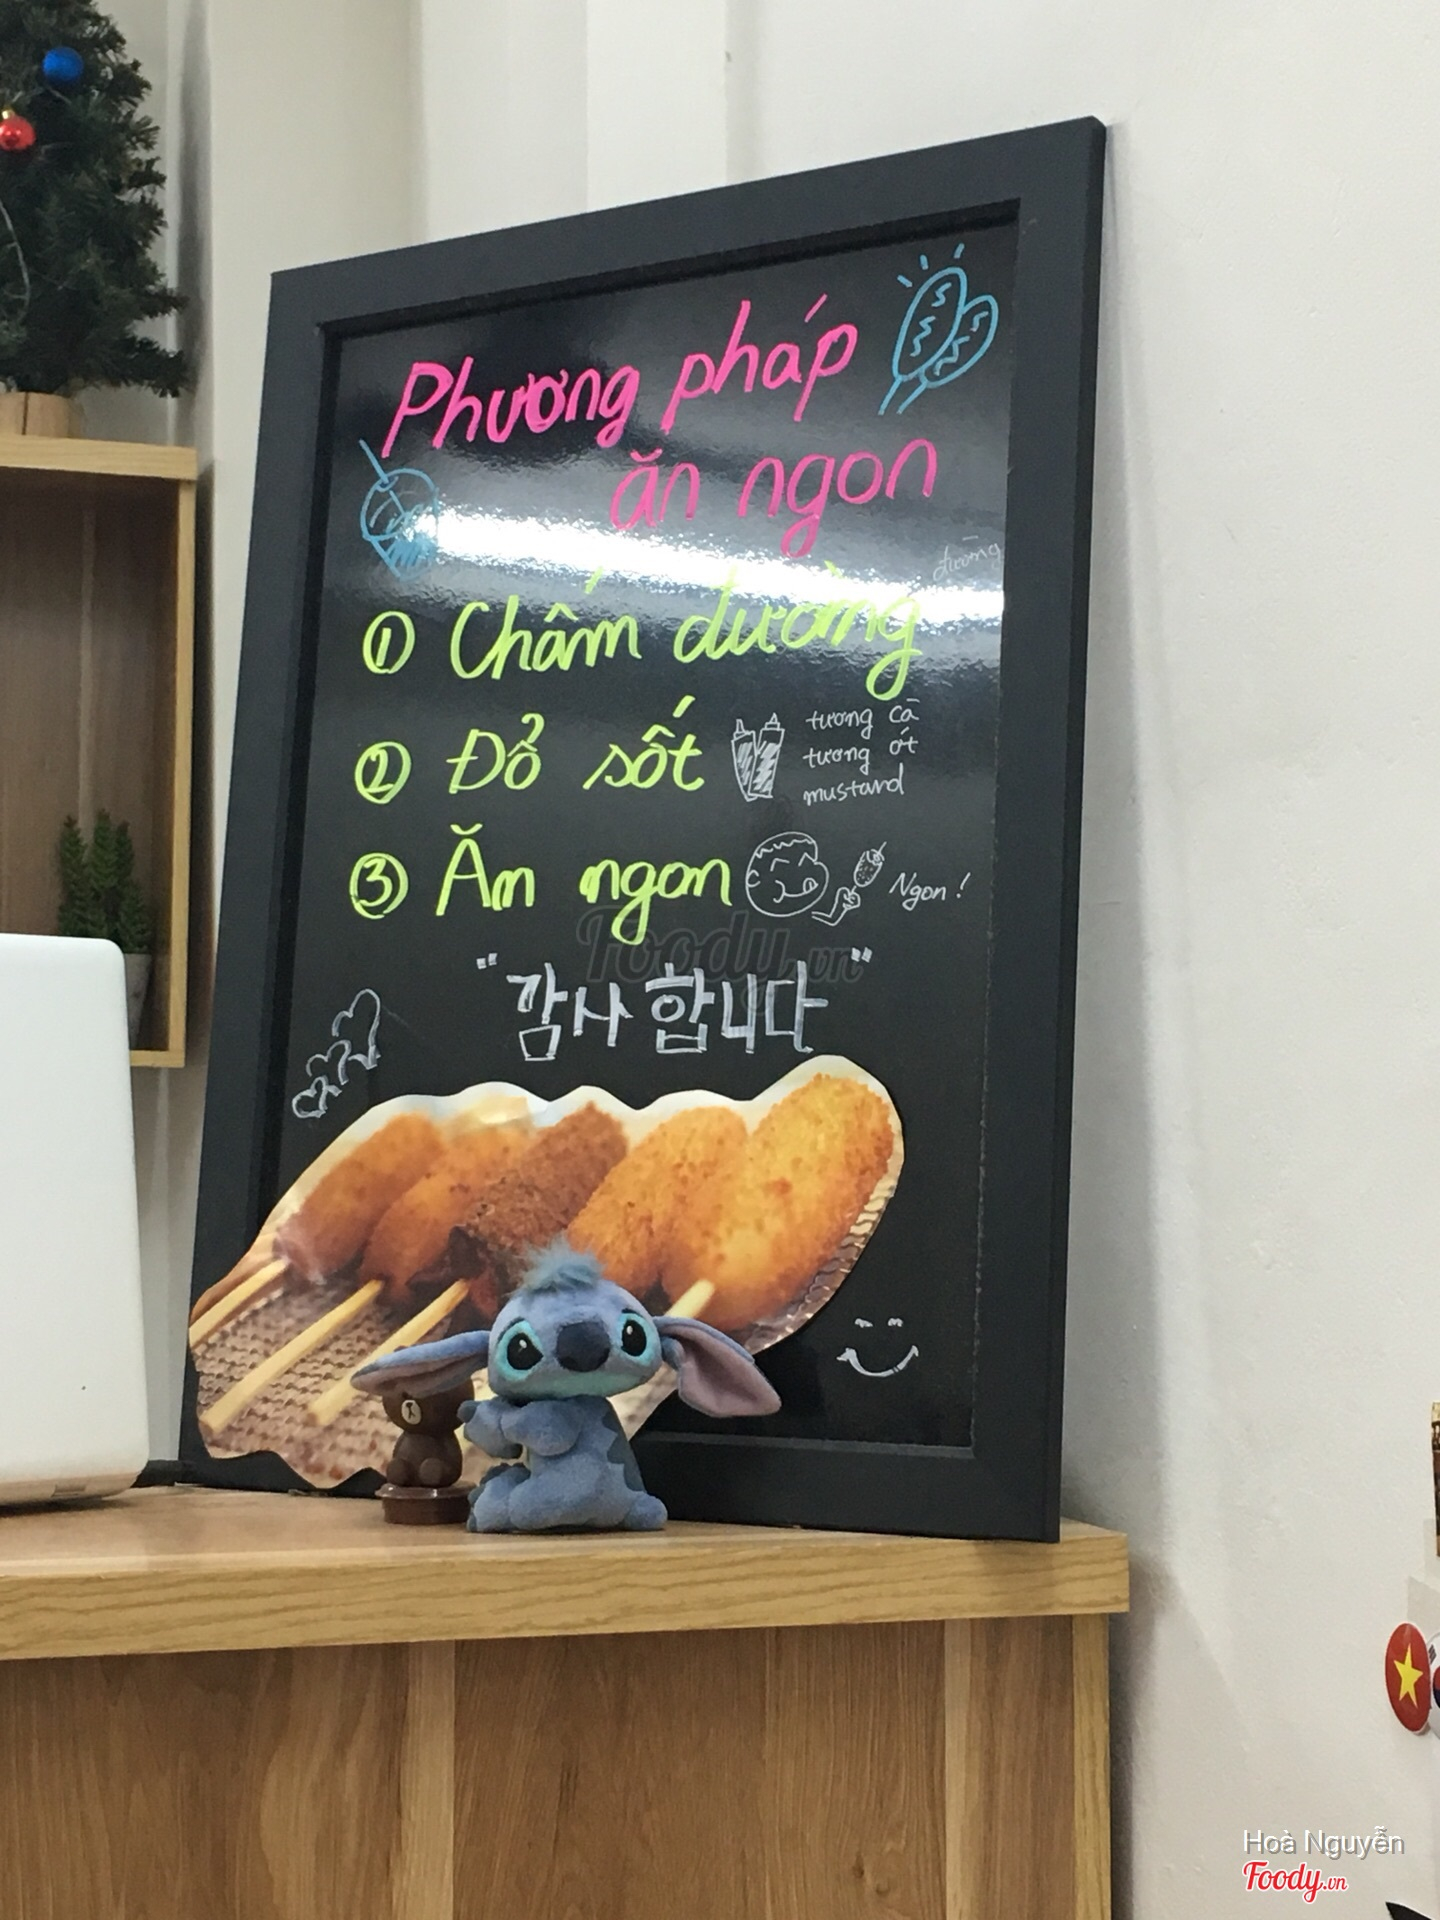 Phương pháp
ăn ngon
đường
① Chấm đường
② Đổ sốt
tương cà
tương ớt
mustard
③ Ăn ngon
Ngon!
Foody.vn
"감사합니다"
Hoà Nguyễn
Foody.vn